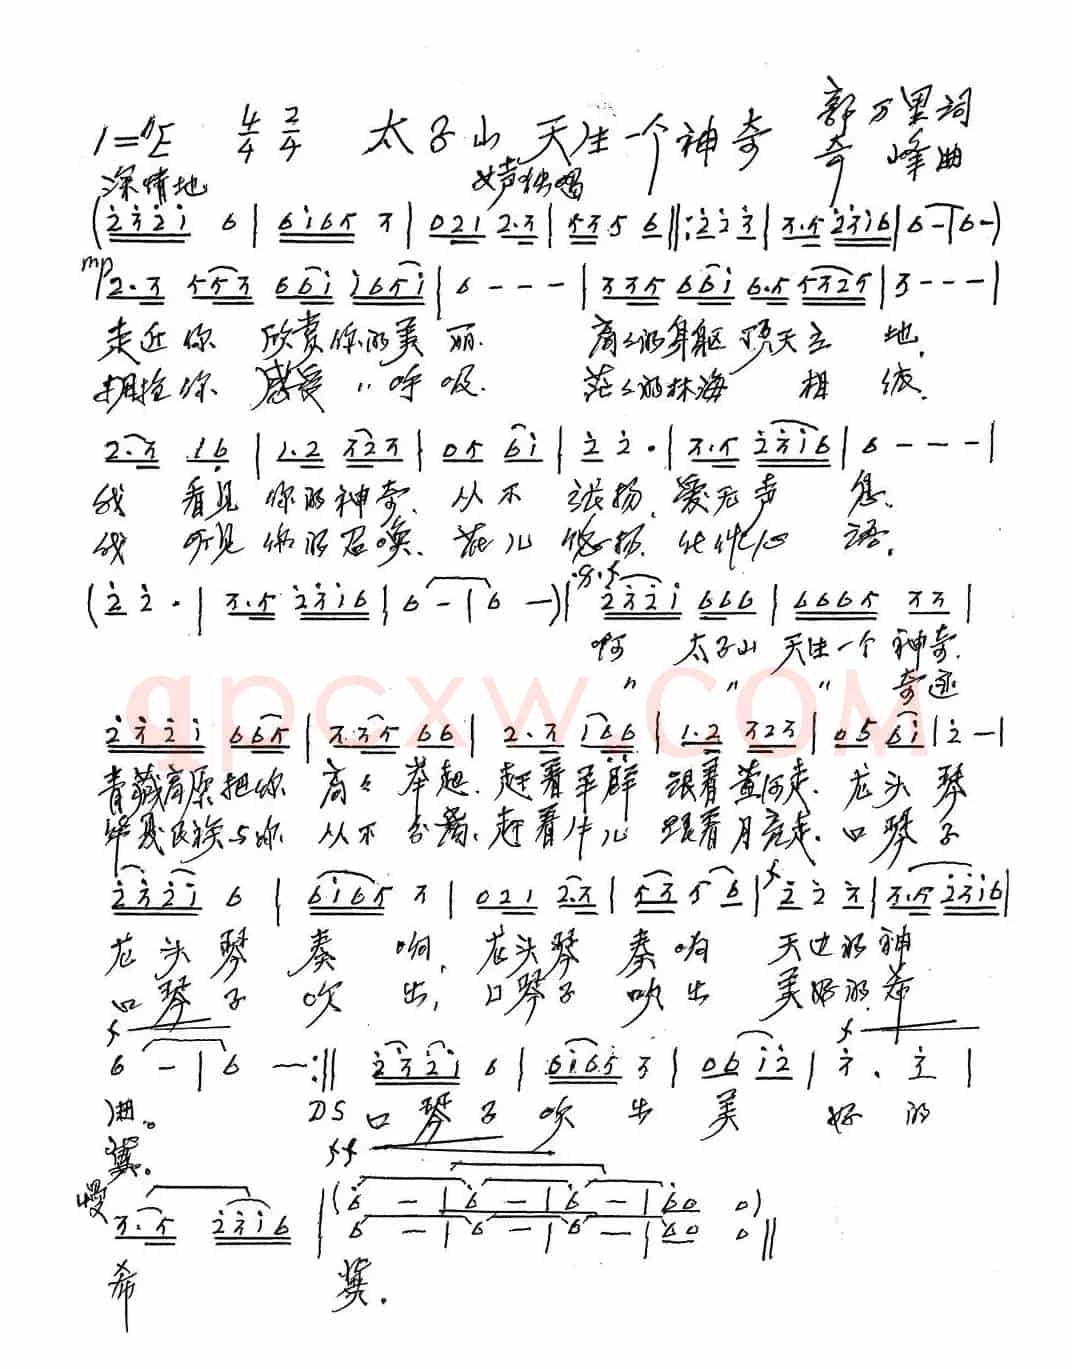 1=♭E 4/4 2/4 太子山 天生一个神奇 郭万里词
深情地 女声独唱 奇峰曲
(2321 6 | 6165 3 | 021 2·3 | 535 6 ‖: 223 | 3·5 2316 | 6 - | 6 -)
mp 2·3 553 661 1651 | 6 - - - | 335 661 6·5 5325 | 3 - - - |
走近你 欣赏你的美 丽. 高高的身躯 顶天立 地,
拥抱你 感受 〃 呼 吸. 茫茫的林海 相 依.
2·3 16 | 1·2 323 | 05 61 | 2 2· | 3·5 2316 | 6 - - - |
我 看见 你的神奇. 从不 张扬. 爱无声 息.
我 听见 你的召唤. 花儿 悠扬. 语.
(2 2· | 3·5 2316 | 6 - | 6 -) | 2321 666 | 6665 33 |
啊 太子山 天生一个 神奇.
〃 〃 〃 奇迹
qpcxw.com
2321 665 | 3·35 66 | 2·3 166 | 1·2 323 | 05 61 | 2 - |
青藏高原把你 高高 举起. 赶着羊群 跟着黄河走. 龙头 琴
华夏民族与你 从不 分离. 赶着 儿 跟着月亮走. 口琴 子
2321 6 | 6165 3 | 021 2·3 | 535 6 | f 2 2 3 | 3·5 2316 |
龙头琴 奏响, 龙头琴 奏响 天边的神
口琴子 吹出, 口琴子 吹出 美好的希
f
6 - | 6 - :‖ 2321 6 | 6165 3 | 06 12 | f 3· 3 |
曲。 DS 口琴子 吹出 美 好 的
冀. ff
慢
3·5 2316 | (6 - | 6 - | 6 - | 60 0)
6 - | 6 - | 6 - | 60 0 ‖
希 冀.